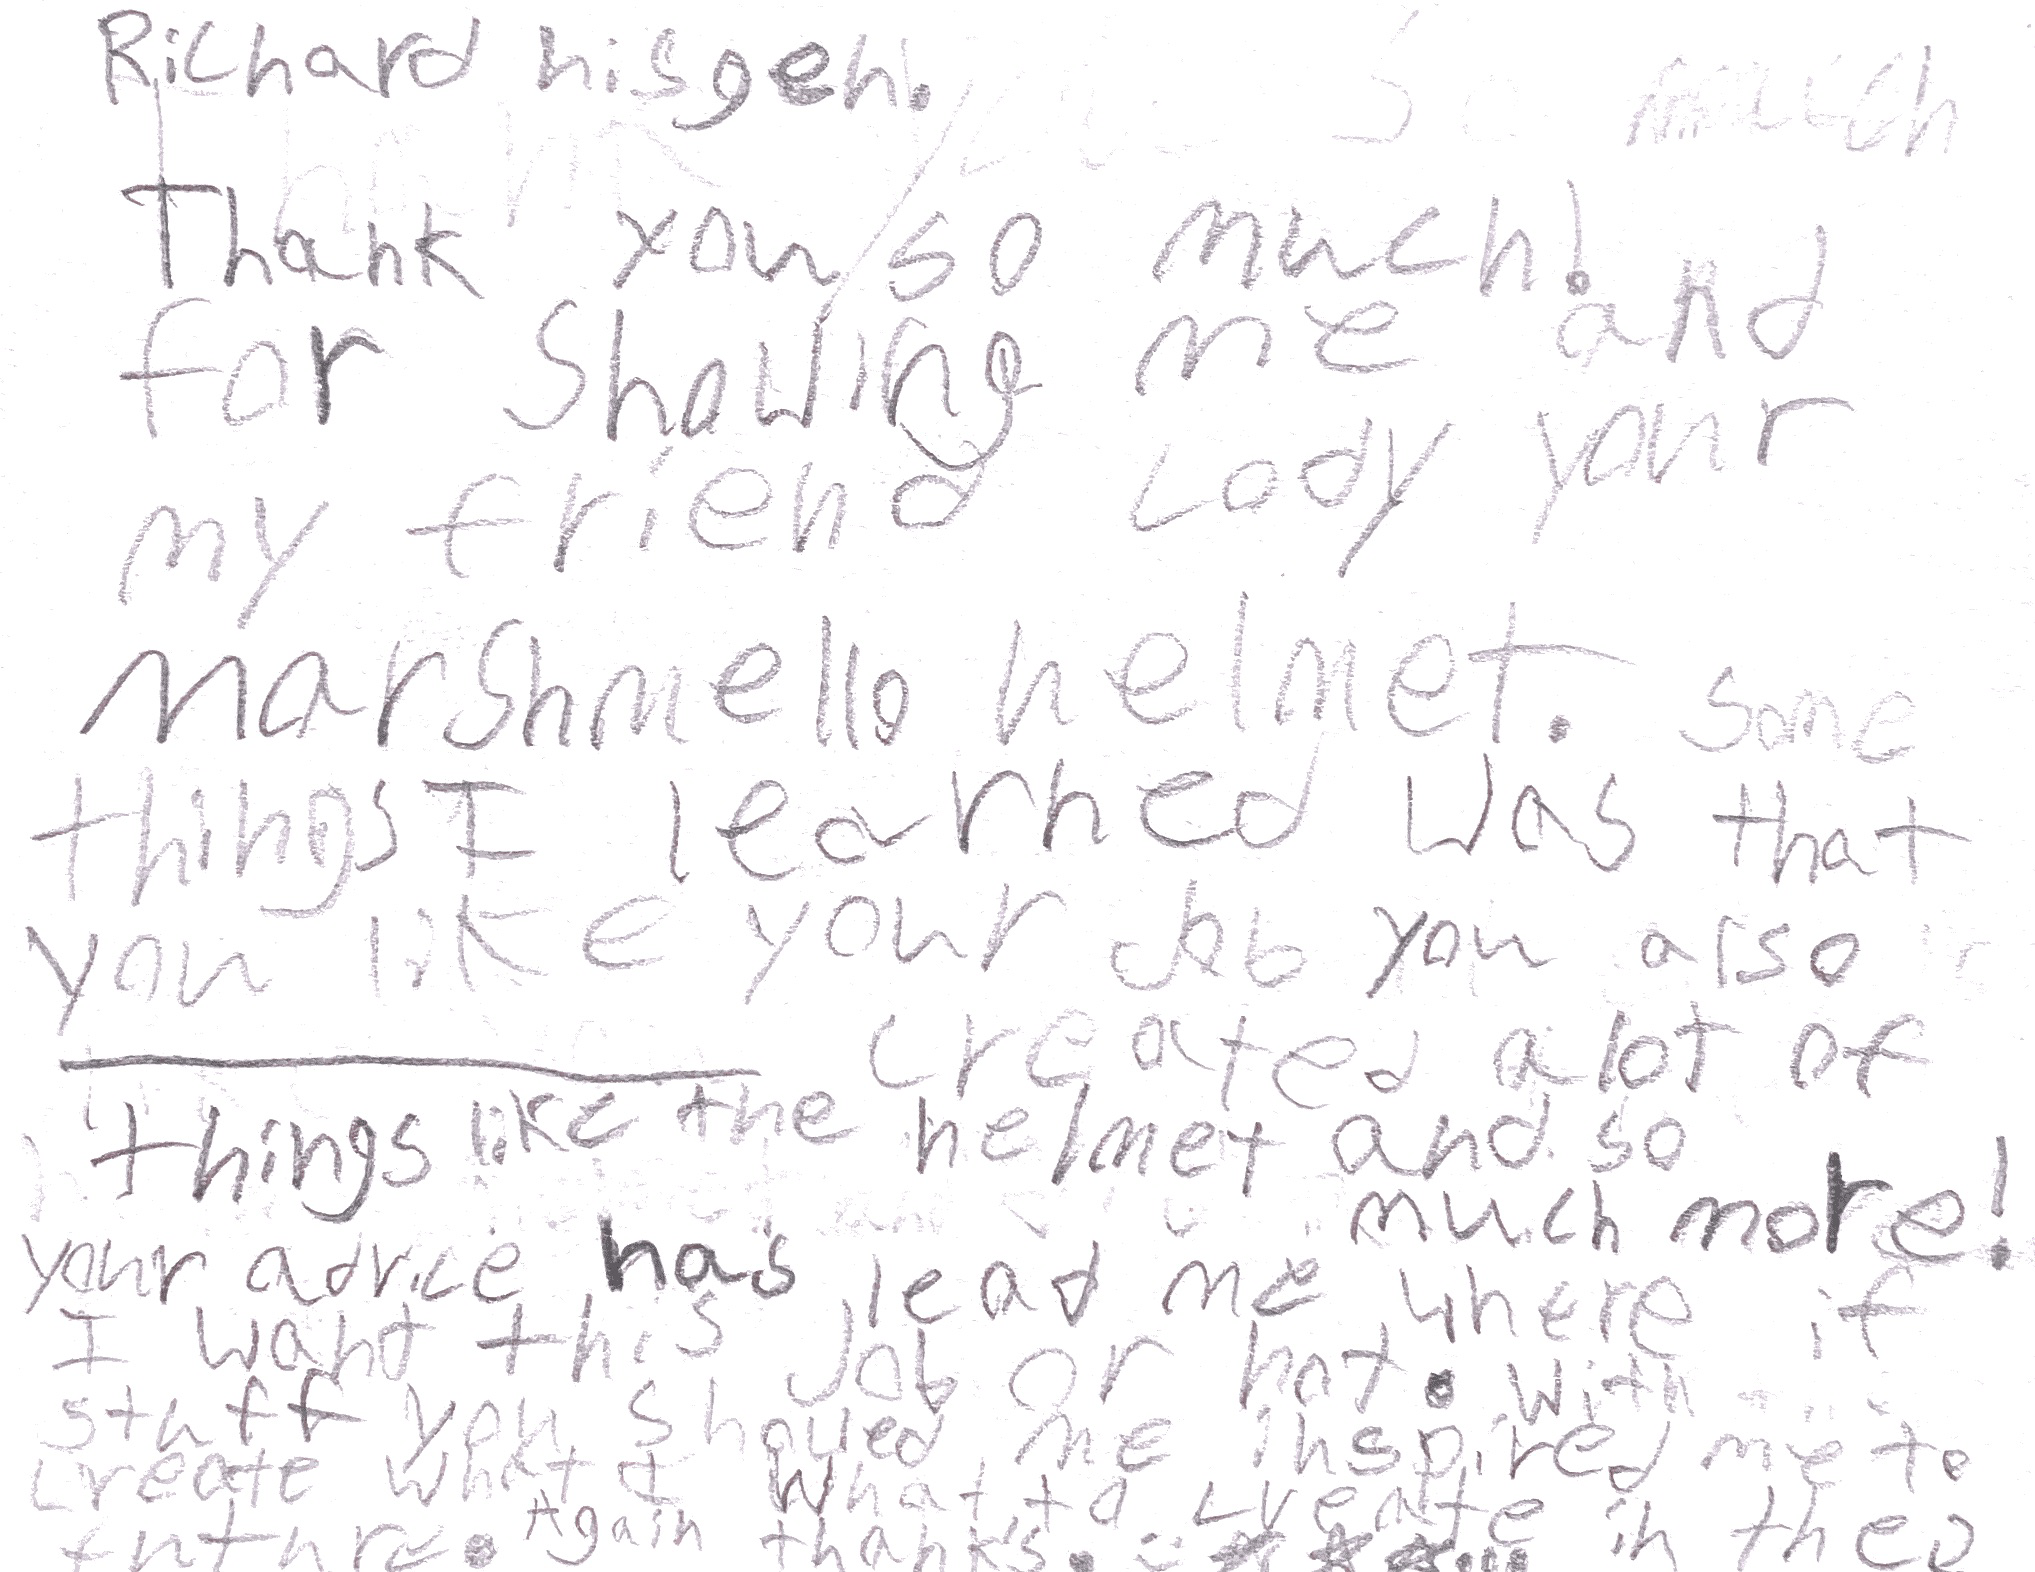 Richard nisgen.
Thank you so much!
for Showing me and
my friend Cody your
marshmello helmet. Some
things I learned was that
you like your Job you also
created a lot of
things like the helmet and so
much more!
your advice has lead me where if
I want this Job or not. with
stuff you showed me inspired me to
create what I what to create in the
future. Again thanks.